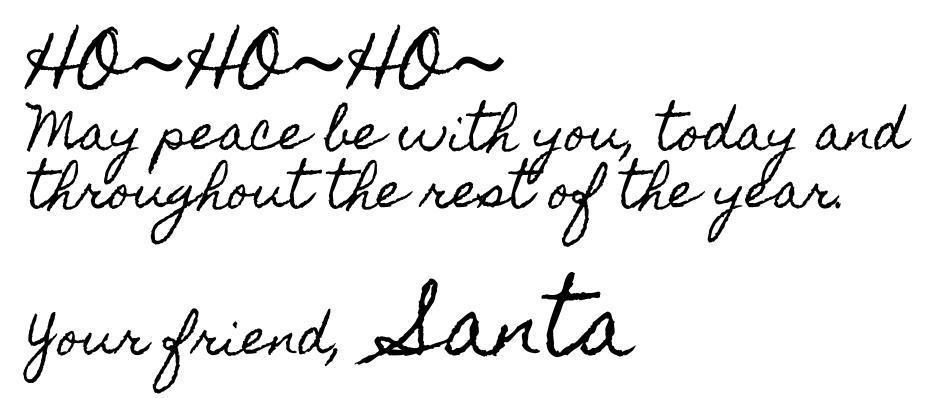 HO~HO~HO~
May peace be with you, today and
throughout the rest of the year.
Your friend, Santa